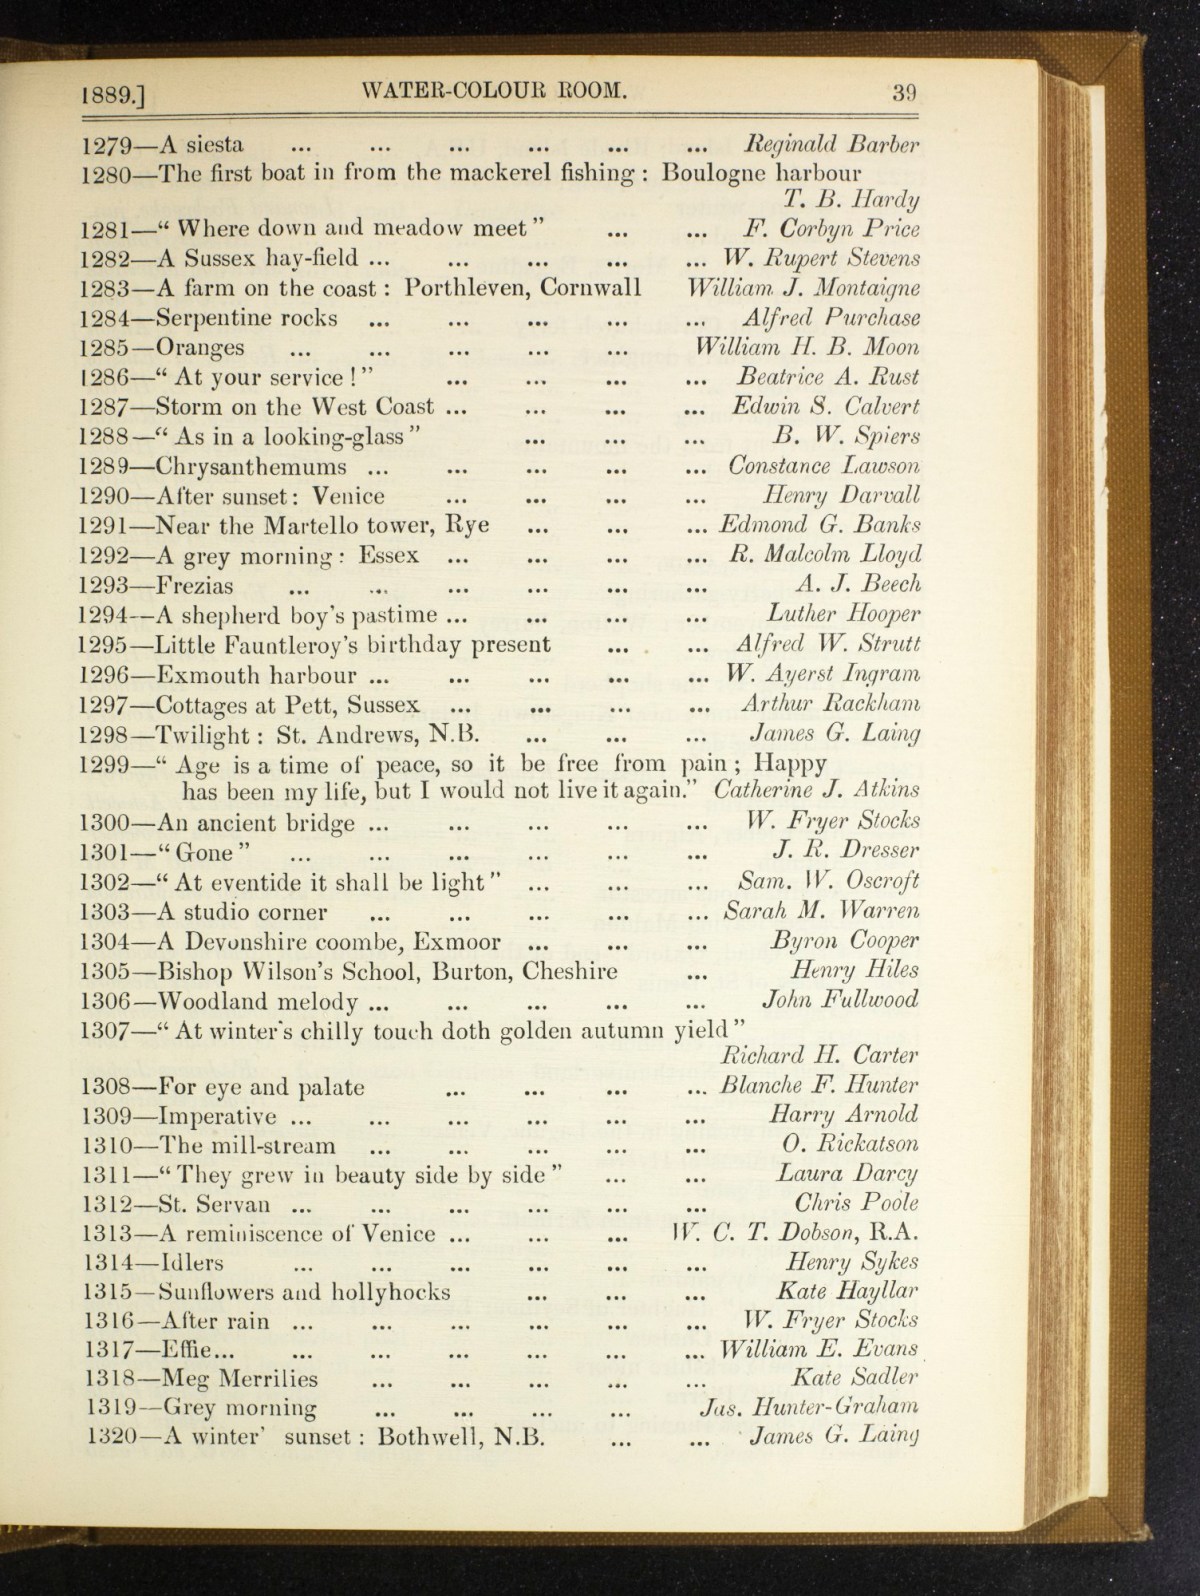 1889.] WATER-COLOUR ROOM. 39
1279—A siesta ... ... ... ... ... ... Reginald Barber
1280—The first boat in from the mackerel fishing : Boulogne harbour
T. B. Hardy
1281—“ Where down and meadow meet ” ... ... F. Corbyn Price
1282—A Sussex hay-field ... ... ... ... ... W. Rupert Stevens
1283—A farm on the coast : Porthleven, Cornwall William J. Montaigne
1284—Serpentine rocks ... ... ... ... ... Alfred Purchase
1285—Oranges ... ... ... ... ... William H. B. Moon
1286—“ At your service ! ” ... ... ... ... Beatrice A. Rust
1287—Storm on the West Coast ... ... ... ... Edwin S. Calvert
1288—“ As in a looking-glass ” ... ... ... B. W. Spiers
1289—Chrysanthemums ... ... ... ... ... Constance Lawson
1290—After sunset : Venice ... ... ... ... Henry Darvall
1291—Near the Martello tower, Rye ... ... ... Edmond G. Banks
1292—A grey morning : Essex ... ... ... ... R. Malcolm Lloyd
1293—Frezias ... ... ... ... ... ... A. J. Beech
1294—A shepherd boy’s pastime ... ... ... ... Luther Hooper
1295—Little Fauntleroy’s birthday present ... ... Alfred W. Strutt
1296—Exmouth harbour ... ... ... ... ... W. Ayerst Ingram
1297—Cottages at Pett, Sussex ... ... ... ... Arthur Rackham
1298—Twilight : St. Andrews, N.B. ... ... ... James G. Laing
1299—“ Age is a time of peace, so it be free from pain ; Happy
has been my life, but I would not live it again.” Catherine J. Atkins
1300—An ancient bridge ... ... ... ... ... W. Fryer Stocks
1301—“ Gone ” ... ... ... ... ... ... J. R. Dresser
1302—“ At eventide it shall be light ” ... ... ... Sam. W. Oscroft
1303—A studio corner ... ... ... ... ... Sarah M. Warren
1304—A Devonshire coombe, Exmoor ... ... ... Byron Cooper
1305—Bishop Wilson’s School, Burton, Cheshire ... Henry Hiles
1306—Woodland melody ... ... ... ... ... John Fullwood
1307—“ At winter’s chilly touch doth golden autumn yield ”
Richard H. Carter
1308—For eye and palate ... ... ... ... Blanche F. Hunter
1309—Imperative ... ... ... ... ... ... Harry Arnold
1310—The mill-stream ... ... ... ... ... O. Rickatson
1311—“ They grew in beauty side by side ” ... ... Laura Darcy
1312—St. Servan ... ... ... ... ... ... Chris Poole
1313—A reminiscence of Venice ... ... ... W. C. T. Dobson, R.A.
1314—Idlers ... ... ... ... ... ... Henry Sykes
1315—Sunflowers and hollyhocks ... ... ... Kate Hayllar
1316—After rain ... ... ... ... ... ... W. Fryer Stocks
1317—Effie... ... ... ... ... ... ... William E. Evans
1318—Meg Merrilies ... ... ... ... ... Kate Sadler
1319—Grey morning ... ... ... ... Jas. Hunter-Graham
1320—A winter’ sunset : Bothwell, N.B. ... ... James G. Laing